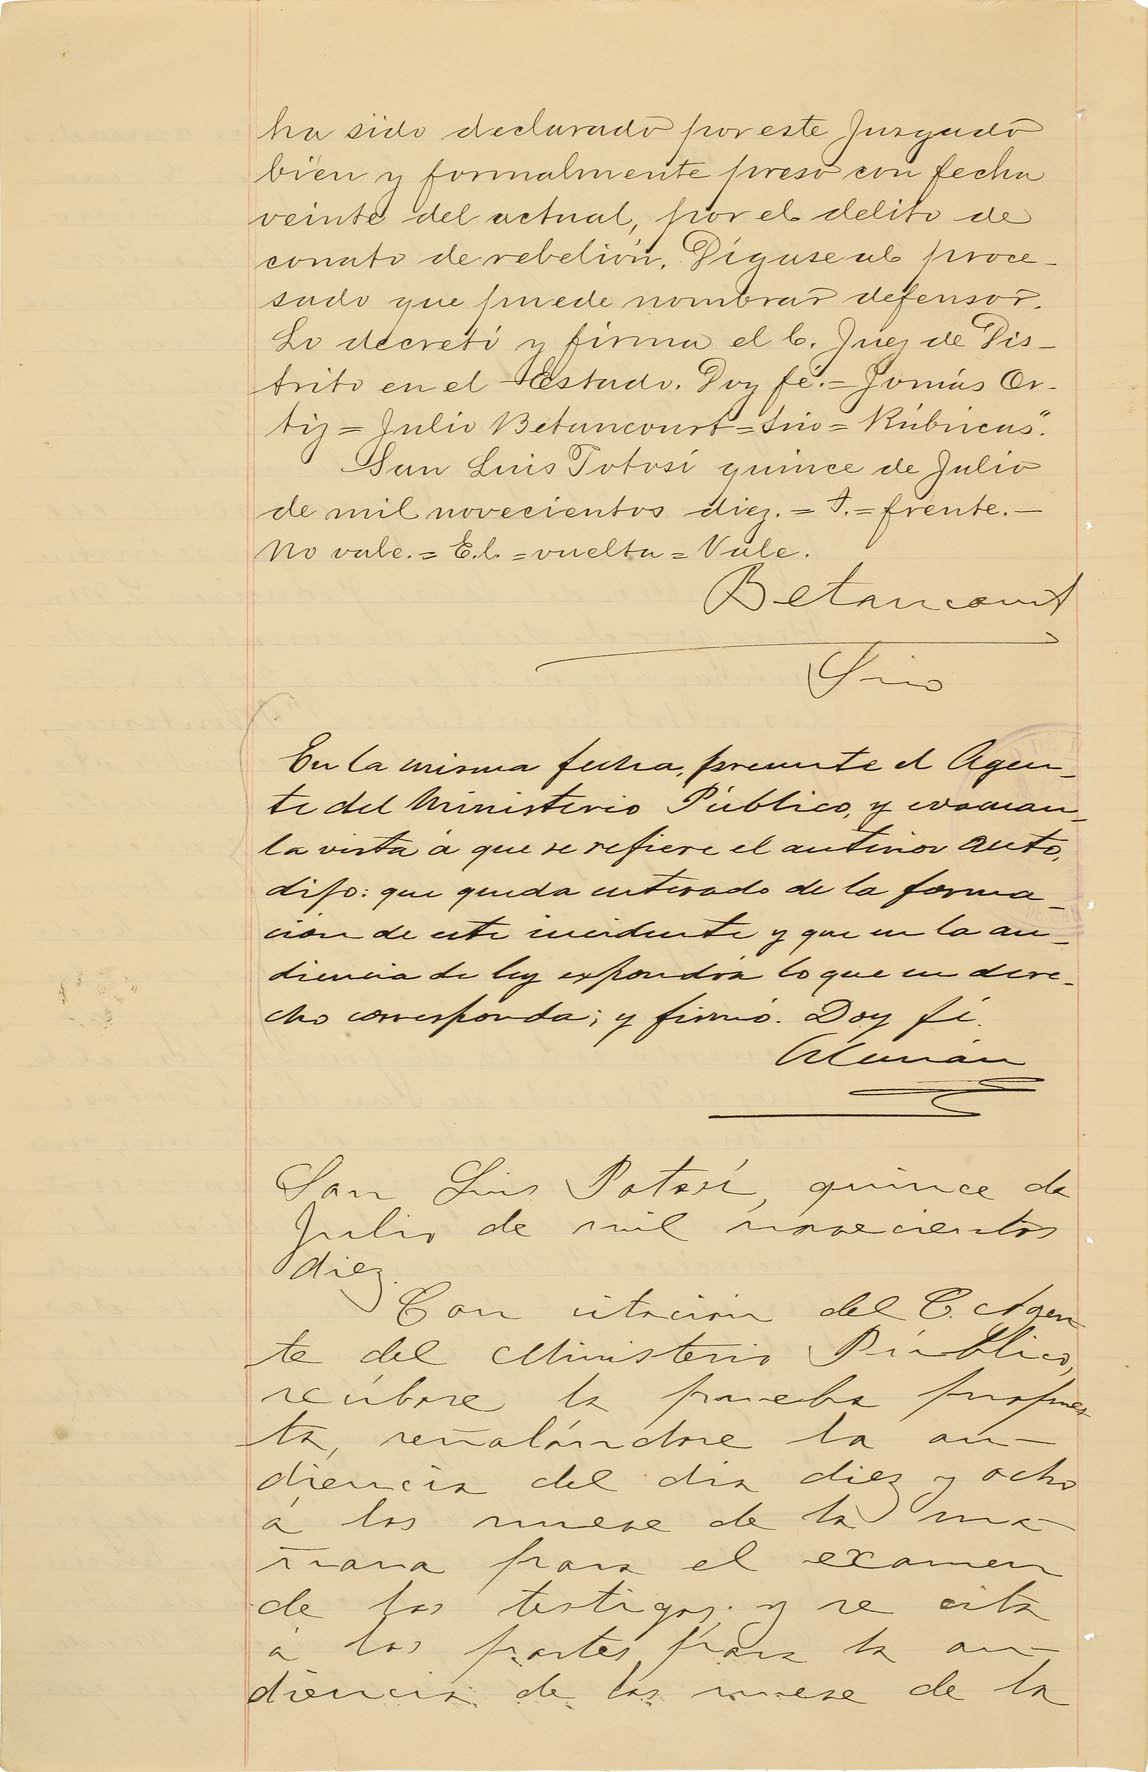 ha sido declarado por este Juzgado
bien y formalmente preso con fecha
veinte del actual, por el delito de
conato de rebelión. Dígase al proce-
sado que puede nombrar defensor.
Lo decretó y firma el C. Juez de Dis-
trito en el Estado. Doy fé. = Tomás Or-
tiz = Julio Betancourt = Srio = Rúbricas".
San Luis Potosí quince de Julio
de mil novecientos diez. = T. = frente. -
No vale. = E.l. = vuelta = Vale.
Betancourt
Srio
En la misma fecha, presente el Agen-
te del Ministerio Público, y evacuan-
la vista á que se refiere el anterior auto,
dijo: que queda enterado de la forma-
ción de este incidente y que en la au-
diencia de ley expondrá lo que en dere-
cho corresponda; y firmó. Doy fé.
Alemán
San Luis Potosí, quince de
Julio de mil novecientos
diez.
Con citación del C. Agen-
te del Ministerio Público,
recíbase la prueba propues
ta, señalándose la au-
diencia del dia diez y ocho
á las nueve de la ma-
ñana para el examen
de los testigos; y se cita
á las partes para la au-
diencia de las nueve de la